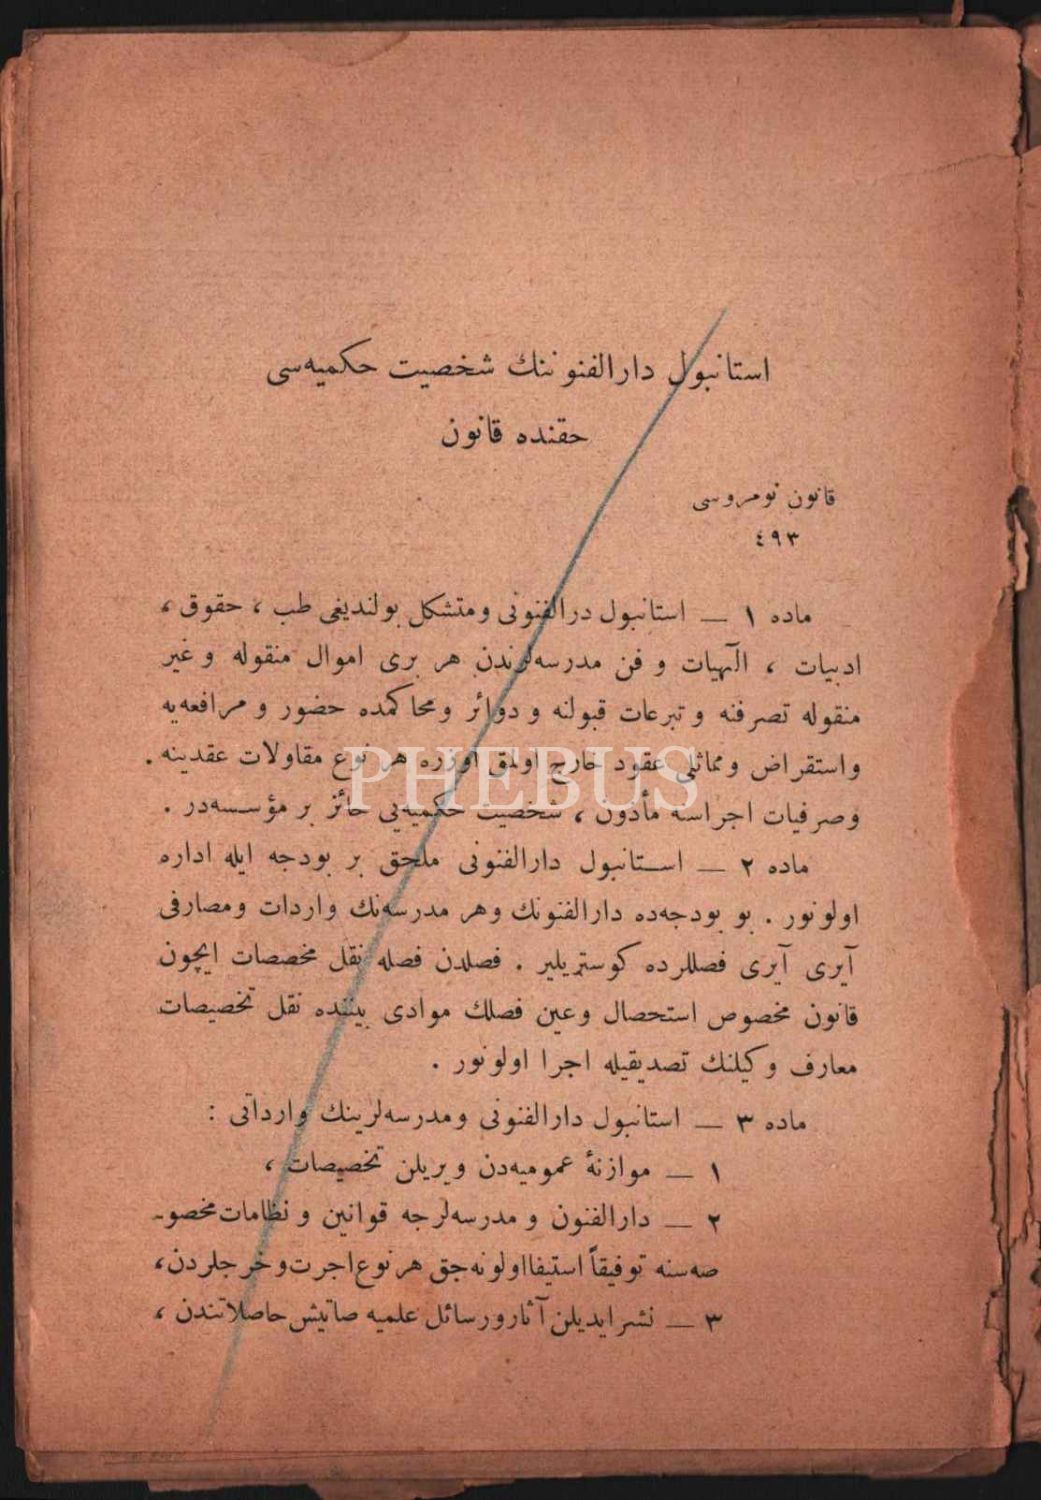 استانبول دارالفنوننك شخصیت حكمیه‌سی
حقنده قانون
قانون نومروسی
٤٩٣
ماده ١ — استانبول درالفنونی ومتشكل بولندیغی طب ، حقوق ،
ادبیات ، الٓهیات و فن مدرسه‌لرندن هر بری اموال منقوله و غیر
منقوله تصرفنه و تبرعات قبولنه و دوائر ومحاكمده حضور و مرافعه‌یه
واستقراض ومماثلی عقود خارج اولمق اوزره هر نوع مقاولات عقدینه .
PHEBUS
وصرفیات اجراسنه مأذون ، شخصیت حكمیه‌یی حائز بر مؤسسه‌در .
ماده ٢ — استانبول دارالفنونی ملحق بر بودجه ایله اداره
اولونور . بو بودجه‌ده دارالفنونك وهر مدرسه‌نك واردات ومصارفی
آیری آیری فصللرده كوستریلیر . فصلدن فصله نقل مخصصات ایچون
قانون مخصوص استحصال وعین فصلك موادی بیننده نقل تخصیصات
معارف وكیلنك تصدیقیله اجرا اولونور .
ماده ٣ — استانبول دارالفنونی ومدرسه‌لرینك وارداتی :
١ — موازنهٔ عمومیه‌دن ویریلن تخصیصات ،
٢ — دارالفنون و مدرسه‌لرجه قوانین و نظامات مخصو-
صه‌سنه توفیقاً استیفا اولونه‌جق هر نوع اجرت و خرجلردن،
٣ — نشر ایدیلن آثار و رسائل علمیه صاتیش حاصلاتندن ،